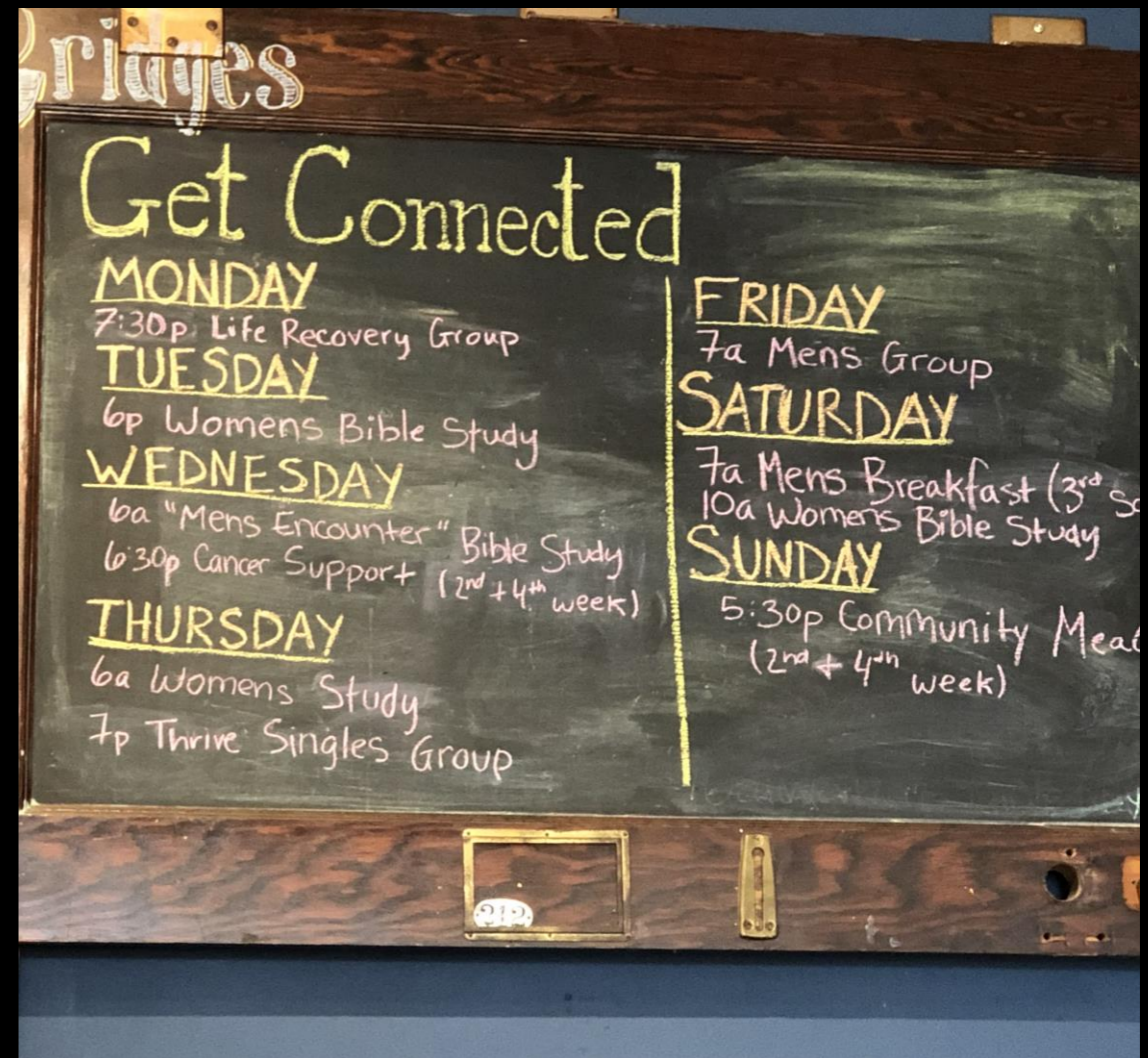 ridges
Get Connected
MONDAY
7:30p Life Recovery Group
TUESDAY
6p Womens Bible Study
WEDNESDAY
6a "Mens Encounter" Bible Study
6:30p Cancer Support (2nd + 4th week)
THURSDAY
6a Womens Study
7p Thrive Singles Group
FRIDAY
7a Mens Group
SATURDAY
7a Mens Breakfast (3rd
10a Womens Bible Study
SUNDAY
5:30p Community
(2nd + 4th week)
212